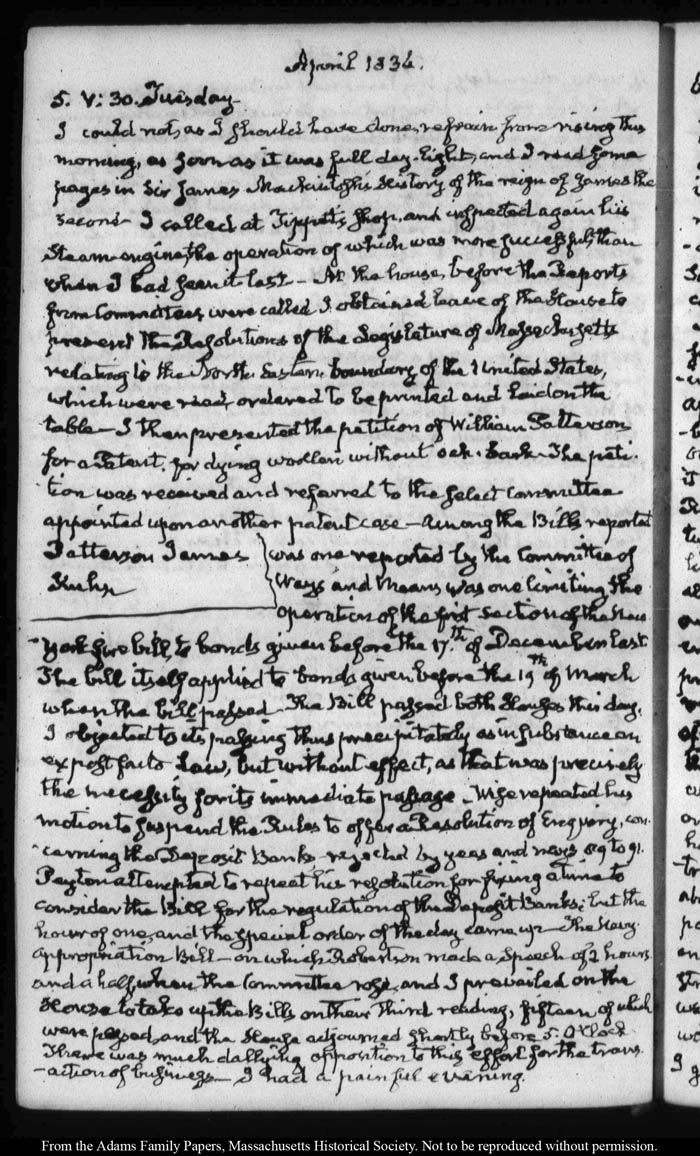 April 1836.
5. V: 30. Tuesday
I could not, as I should have done, refrain from rising this
morning, as soon as it was full day-light, and I read some
pages in Sir James Mackintosh's History of the reign of James the
second— I called at Tippett's shop, and inspected again his
Steam-engine, the operation of which was more successful, than
when I had seen it last— At the house, before the Reports
from Committees were called I obtained leave of the House to
present the Resolutions of the Legislature of Massachusetts
relating to the North Eastern boundary of the United States,
which were read, ordered to be printed and laid on the
table— I then presented the petition of William Patterson
for a Patent, for dying woollen without oak-bark. The peti-
-tion was received and referred to the select Committee
appointed upon another patent case— Among the Bills reported
Patterson James
Kuhn
was one reported by the Committee of
Ways and Means was one limiting the
operation of the first section of the New
-York fire bill, to bonds given before the 17th of December last.
The bill itself applied to bonds given before the 19th of March
when the bill passed— The Bill passed both Houses this day.
I objected to its passing thus precipitately as in substance an
ex post facto Law, but without effect, as that was precisely
the necessity for its immediate passage— Wise repeated his
motion to suspend the Rules to offer a Resolution of Enquiry, con-
-cerning the Deposit Banks— rejected by yeas and nays 89 to 91.
Peyton attempted to repeat his resolution for fixing a time to
consider the Bill for the regulation of the Deposit Banks; but the
hour of one, and the special order of the day came up— The Navy
appropriation Bill— on which Robertson made a Speech of 2 hours
and a half, when the Committee rose, and I prevailed on the
House to take up the Bills on their third reading, fifteen of which
were passed, and the House adjourned shortly before 5. O'Clock
There was much dallying opposition to this effort for the trans-
-action of business— I had a painful evening.
From the Adams Family Papers, Massachusetts Historical Society. Not to be reproduced without permission.